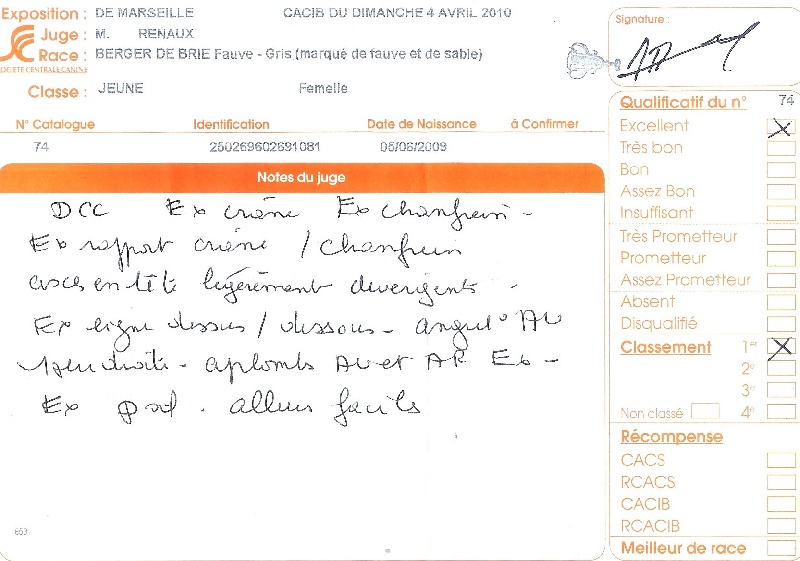 Exposition : DE MARSEILLE CACIB DU DIMANCHE 4 AVRIL 2010
Juge : M. RENAUX
Race : BERGER DE BRIE Fauve - Gris (marqué de fauve et de sable)
SOCIETE CENTRALE CANINE
Classe : JEUNE Femelle
N° Catalogue Identification Date de Naissance à Confirmer
74 250269602691081 05/06/2009
Notes du juge
DCC Ex crâne Ex chanfrein -
Ex rapport crâne / chanfrein
axes en tête légèrement divergents -
Ex ligne dessus / dessous - angul° AV
droite - aplombs AV et AR Ex -
Ex allures faciles
653
Signature :
Qualificatif du n° 74
Excellent
Très bon
Bon
Assez Bon
Insuffisant
Très Prometteur
Prometteur
Assez Prometteur
Absent
Disqualifié
Classement 1er
2e
3e
Non classé 4e
Récompense
CACS
RCACS
CACIB
RCACIB
Meilleur de race